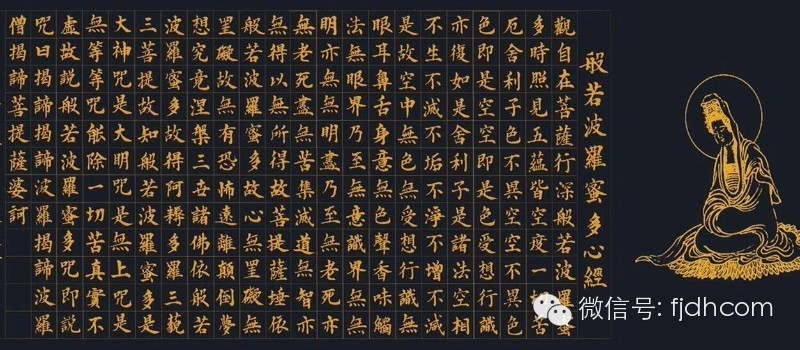 般若波羅蜜多心經
觀自在菩薩行深般若波羅蜜
多時照見五蘊皆空度一切苦
厄舍利子色不異空空不異色
色即是空空即是色受想行識
亦復如是舍利子是諸法空相
不生不滅不垢不淨不增不減
是故空中無色無受想行識無
眼耳鼻舌身意無色聲香味觸
法無眼界乃至無意識界無無
明亦無無明盡乃至無老死亦
無老死盡無苦集滅道無智亦
無得以無所得故菩提薩埵依
般若波羅蜜多故心無罣礙無
罣礙故無有恐怖遠離顛倒夢
想究竟涅槃三世諸佛依般若
波羅蜜多故得阿耨多羅三藐
三菩提故知般若波羅蜜多是
大神咒是大明咒是無上咒是
無等等咒能除一切苦真實不
虛故說般若波羅蜜多咒即說
咒曰揭諦揭諦波羅揭諦波羅
僧揭諦菩提薩婆訶
微信号: fjdhcom